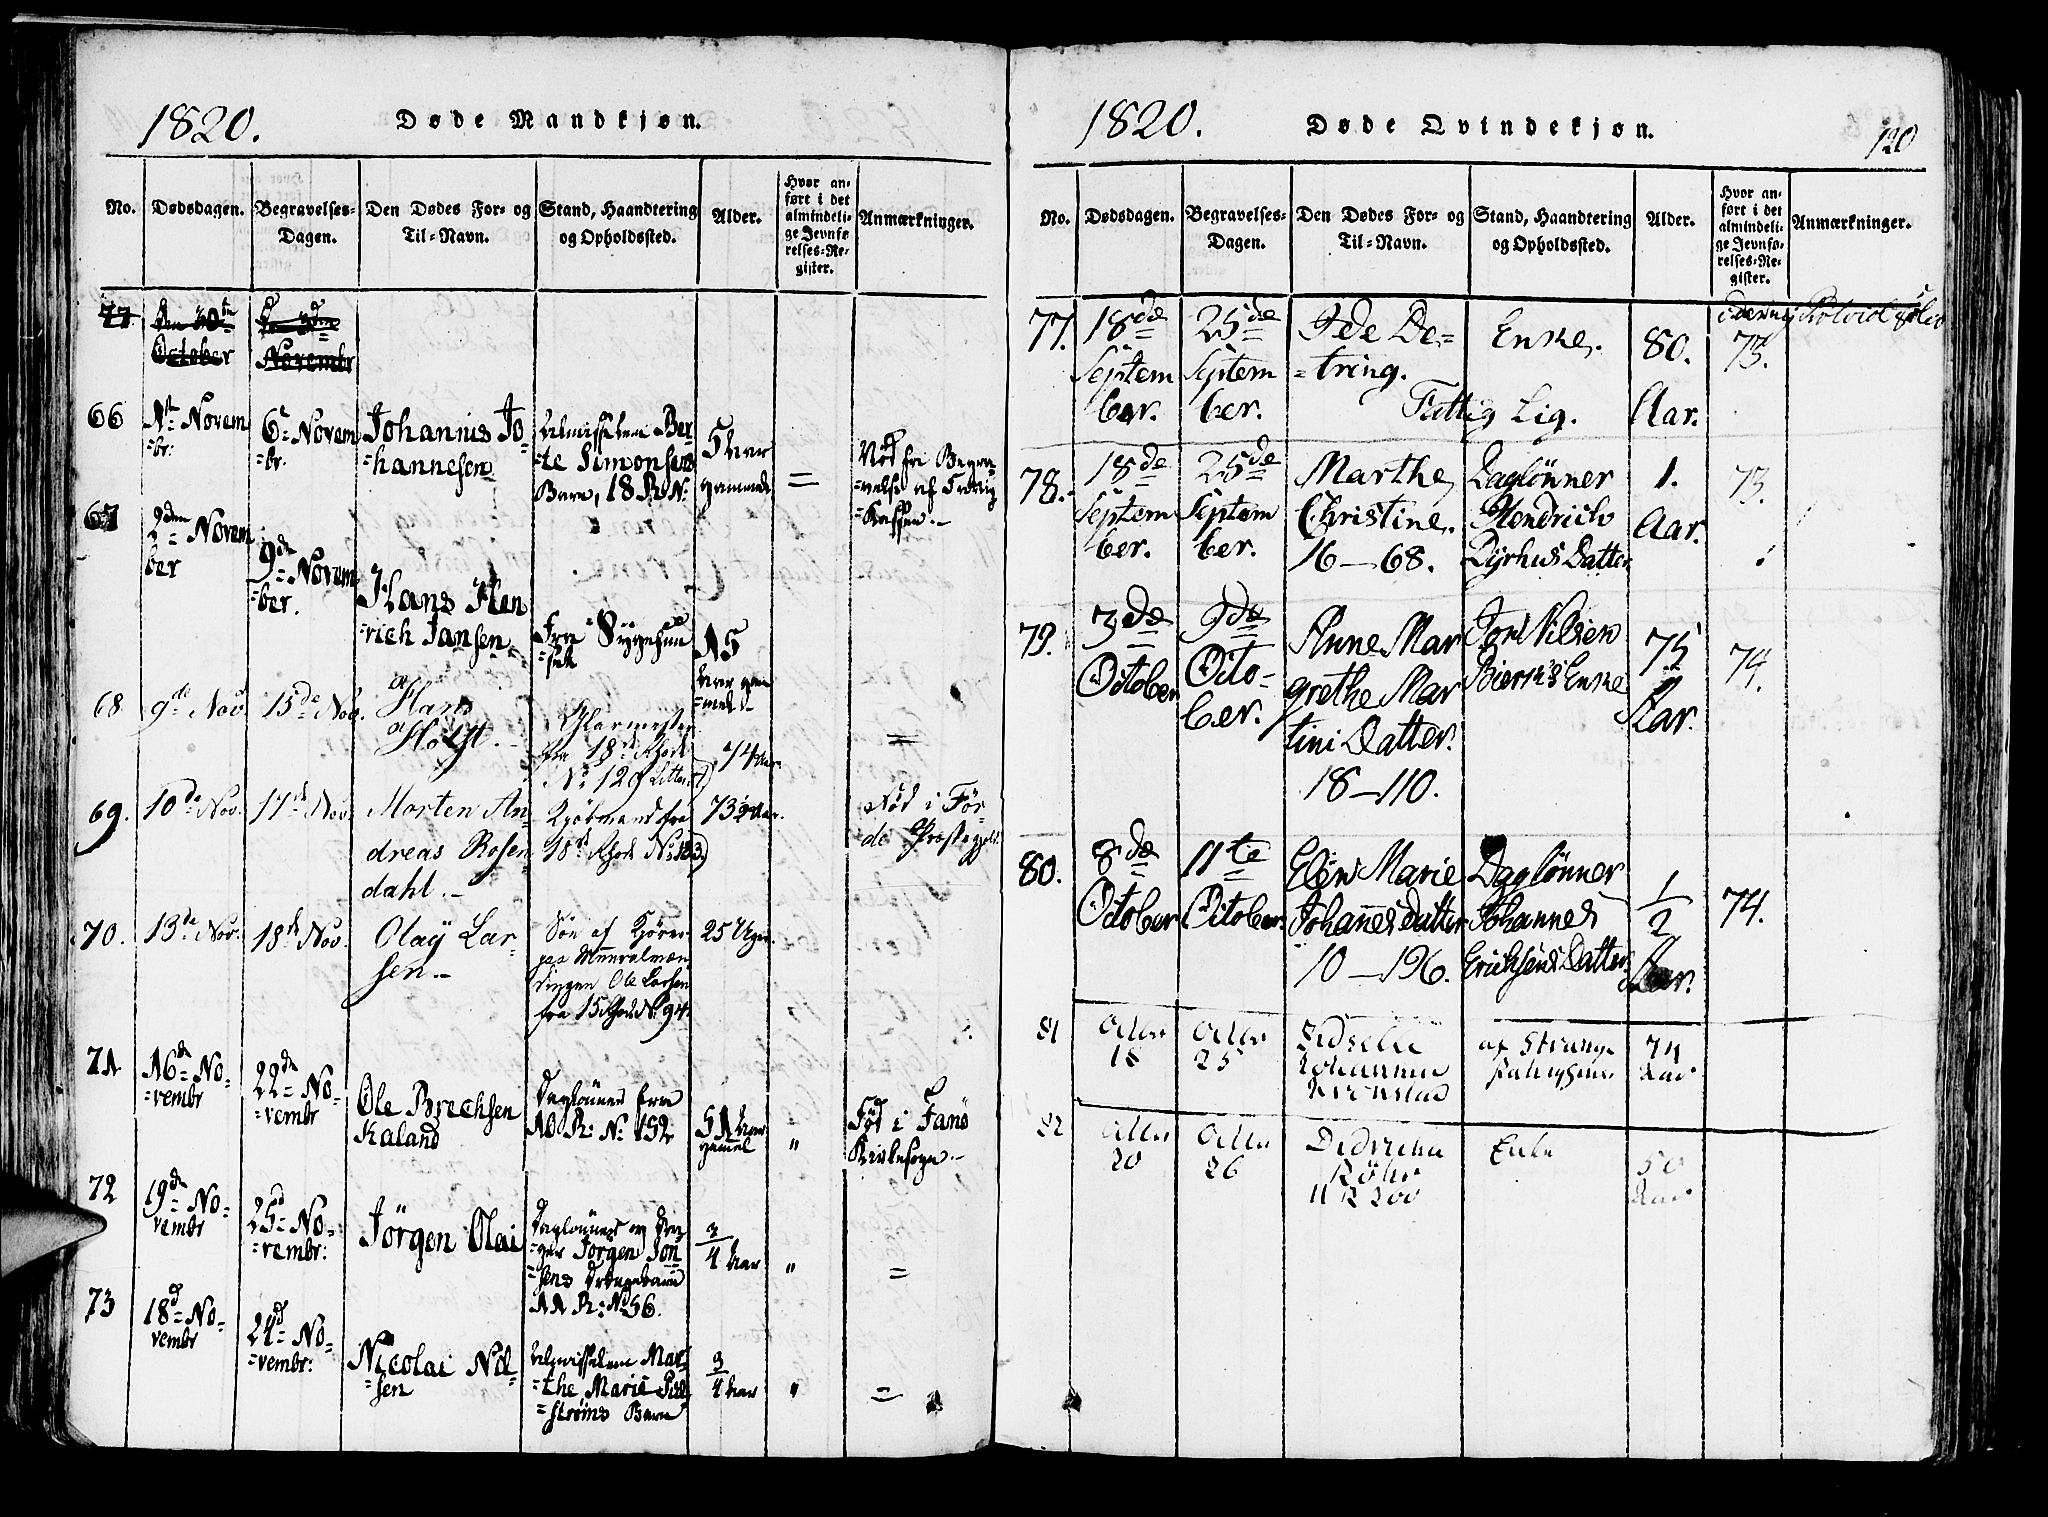 1820.
Døde Mandkjøn.
No.
Dødsdagen.
Begravelses-
Dagen.
Den Dødes For- og
Til-Navn.
Stand, Haandtering
og Opholdssted.
Alder.
Hvor an-
ført i det
almindeli-
ge Jevnfø-
relses-Re-
gister.
Anmærkninger.
77
Den 30te
October
Den 3den
Novembr
66
1te Novem
=br:
6te Novem
=br.
Johannis Jo-
=hannesen
Almisselem Ber-
=te Simonsens
Barn, 18 R. N:
5 Aar
gammel
=
67
2den Novem
ber
9de Novem
=ber.
Hans Hen
=rich Jansen
Fra Syggehuu
=set
15
Aar gam
=mel
68
9de Nov.
15de Nov.
Hans
Holst.
Glarmester
fra 18de Rode
No 120 Litter
74 Aar.
=
69.
10de Nov.
17de Nov.
Morten An-
dreas Rosen
dahl.
Kjøbmand fra
18de Rode No 123
73½ Aar.
Fød i Før-
de Præstegjeld
70.
13de Nov.
18de Nov.
Olay Lar-
sen.
Søn af
Ole Larsen
fra 15 Rode No 94.
25 Uger.
71
16de No-
=vembr
22de No-
=vembr
Ole Brechsen
Kaland
Daglønner fra
10 R: No 152
51 Aar
gamel
"
Fød i Fanø
Kirkesogn.
72
19de No-
vembr
25d No-
=vembr:
Jörgen Olai
Daglønner og
Jörgen Jon
=sens Drengebarn
11 R: No 56.
3/4 Aar
"
=
73
18d No-
vembr
24d No-
=vembr:
Nicolai Nil-
=sen
Almisselem Mar-
=the Marie
=strøms Barn
3/4 Aar
"
=
1820.
Døde Qvindekjøn.
120
No.
Dødsdagen.
Begravelses-
Dagen.
Den Dødes For- og
Til-Navn.
Stand, Haandtering
og Opholdssted.
Alder.
Hvor an-
ført i det
almindeli-
ge Jevnfø-
relses-Re-
gister.
Anmærkninger.
77.
18de
Septem
ber.
25de
Septem
ber.
Ide De=
=tring.
Enke.
Fattig Lig.
80.
Aar.
73.
78.
18de
Septem
ber.
25de
Septem
ber.
Marthe
Christine.
16—68.
Daglønner
Hendrich
Dyrhus Datter
1.
Aar.
73.
79.
3de
October
9de
Octo-
ber.
Anne Mar
grethe Mar
tini Datter.
18—110.
Jon Nilsen
Enke
75
Aar.
74.
80.
8de
October
11te
October.
Elen Marie
Johannes Datter
10—196.
Daglønner
Johannes
Erichsens Datter
1/2
Aar.
74.
81
Octbr
18
Octbr
25
Zidselle
Johanna
Kronstad
af Strange
74
Aar
82
Octbr
20
Octbr
26
Didricha
Røhr
11 R 200
Enke
50
Aar